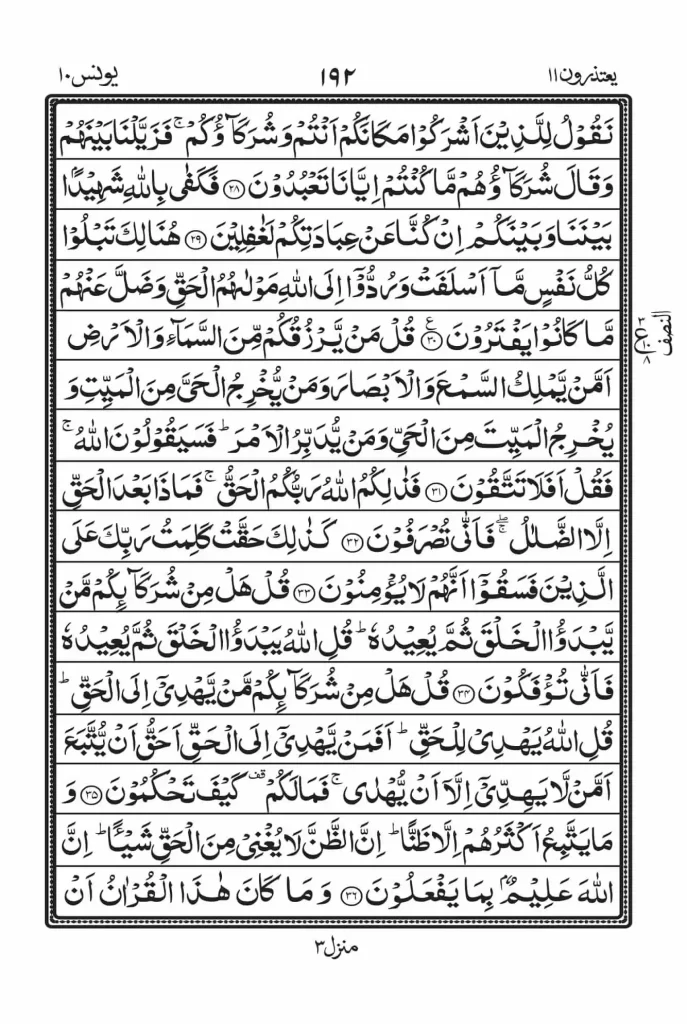 یعتذرون ۱۱ ۱۹۲ یونس ۱۰
نَقُوۡلُ لِلَّذِيۡنَ اَشۡرَكُوۡا مَكَانَكُمۡ اَنۡتُمۡ وَشُرَكَآؤُكُمۡ‌ ۚ فَزَيَّلۡنَا بَيۡنَهُمۡ‌
وَقَالَ شُرَكَآؤُهُمۡ مَّا كُنۡتُمۡ اِيَّانَا تَعۡبُدُوۡنَ ﴿۲۸﴾ فَكَفٰى بِاللّٰهِ شَهِيۡدًۢا
بَيۡنَنَا وَبَيۡنَكُمۡ اِنۡ كُنَّا عَنۡ عِبَادَتِكُمۡ لَغٰفِلِيۡنَ ﴿۲۹﴾ هُنَالِكَ تَبۡلُوۡا
كُلُّ نَفۡسٍ مَّاۤ اَسۡلَفَتۡ‌ وَرُدُّوۡۤا اِلَى اللّٰهِ مَوۡلٰٮهُمُ الۡحَـقِّ‌ وَضَلَّ عَنۡهُمۡ
مَّا كَانُوۡا يَفۡتَرُوۡنَ ﴿۳۰﴾ ع قُلۡ مَنۡ يَّرۡزُقُكُمۡ مِّنَ السَّمَآءِ وَالۡاَرۡضِ
النصف
۳ ع ۱۰ ۸
اَمَّنۡ يَّمۡلِكُ السَّمۡعَ وَالۡاَبۡصَارَ وَمَنۡ يُّخۡرِجُ الۡحَـىَّ مِنَ الۡمَيِّتِ وَ
يُخۡرِجُ الۡمَيِّتَ مِنَ الۡحَـىِّ وَمَنۡ يُّدَبِّرُ الۡاَمۡرَ‌ؕ فَسَيَـقُوۡلُوۡنَ اللّٰهُ‌ۚ
فَقُلۡ اَفَلَا تَتَّقُوۡنَ ﴿۳۱﴾ فَذٰلِكُمُ اللّٰهُ رَبُّكُمُ الۡحَـقُّ‌ ۚ فَمَاذَا بَعۡدَ الۡحَـقِّ
اِلَّا الضَّلٰلُ‌ ‌ۖ‌ۚ فَاَنّٰى تُصۡرَفُوۡنَ ﴿۳۲﴾ كَذٰلِكَ حَقَّتۡ كَلِمَتُ رَبِّكَ عَلَى
الَّذِيۡنَ فَسَقُوۡۤا اَنَّهُمۡ لَا يُؤۡمِنُوۡنَ ﴿۳۳﴾ قُلۡ هَلۡ مِنۡ شُرَكَآٮِٕكُمۡ مَّنۡ
يَّبۡدَؤُا الۡخَـلۡقَ ثُمَّ يُعِيۡدُهٗ‌ ؕ قُلِ اللّٰهُ يَـبۡدَؤُا الۡخَـلۡقَ ثُمَّ يُعِيۡدُهٗ‌
فَاَنّٰى تُؤۡفَكُوۡنَ ﴿۳۴﴾ قُلۡ هَلۡ مِنۡ شُرَكَآٮِٕكُمۡ مَّنۡ يَّهۡدِىۡۤ اِلَى الۡحَـقِّ‌ؕ
قُلِ اللّٰهُ يَهۡدِىۡ لِلۡحَقِّ‌ؕ اَفَمَنۡ يَّهۡدِىۡۤ اِلَى الۡحَقِّ اَحَقُّ اَنۡ يُّتَّبَعَ
اَمَّنۡ لَّا يَهِدِّىۡۤ اِلَّاۤ اَنۡ يُّهۡدٰى‌ۚ فَمَا لَكُمۡ قف كَيۡفَ تَحۡكُمُوۡنَ ﴿۳۵﴾ وَ
مَا يَتَّبِعُ اَكۡثَرُهُمۡ اِلَّا ظَنًّا‌ ؕ اِنَّ الظَّنَّ لَا يُغۡنِىۡ مِنَ الۡحَـقِّ شَيۡــًٔا‌ ؕ اِنَّ
اللّٰهَ عَلِيۡمٌۢ بِمَا يَفۡعَلُوۡنَ ﴿۳۶﴾ وَمَا كَانَ هٰذَا الۡقُرۡاٰنُ اَنۡ
منزل ۳